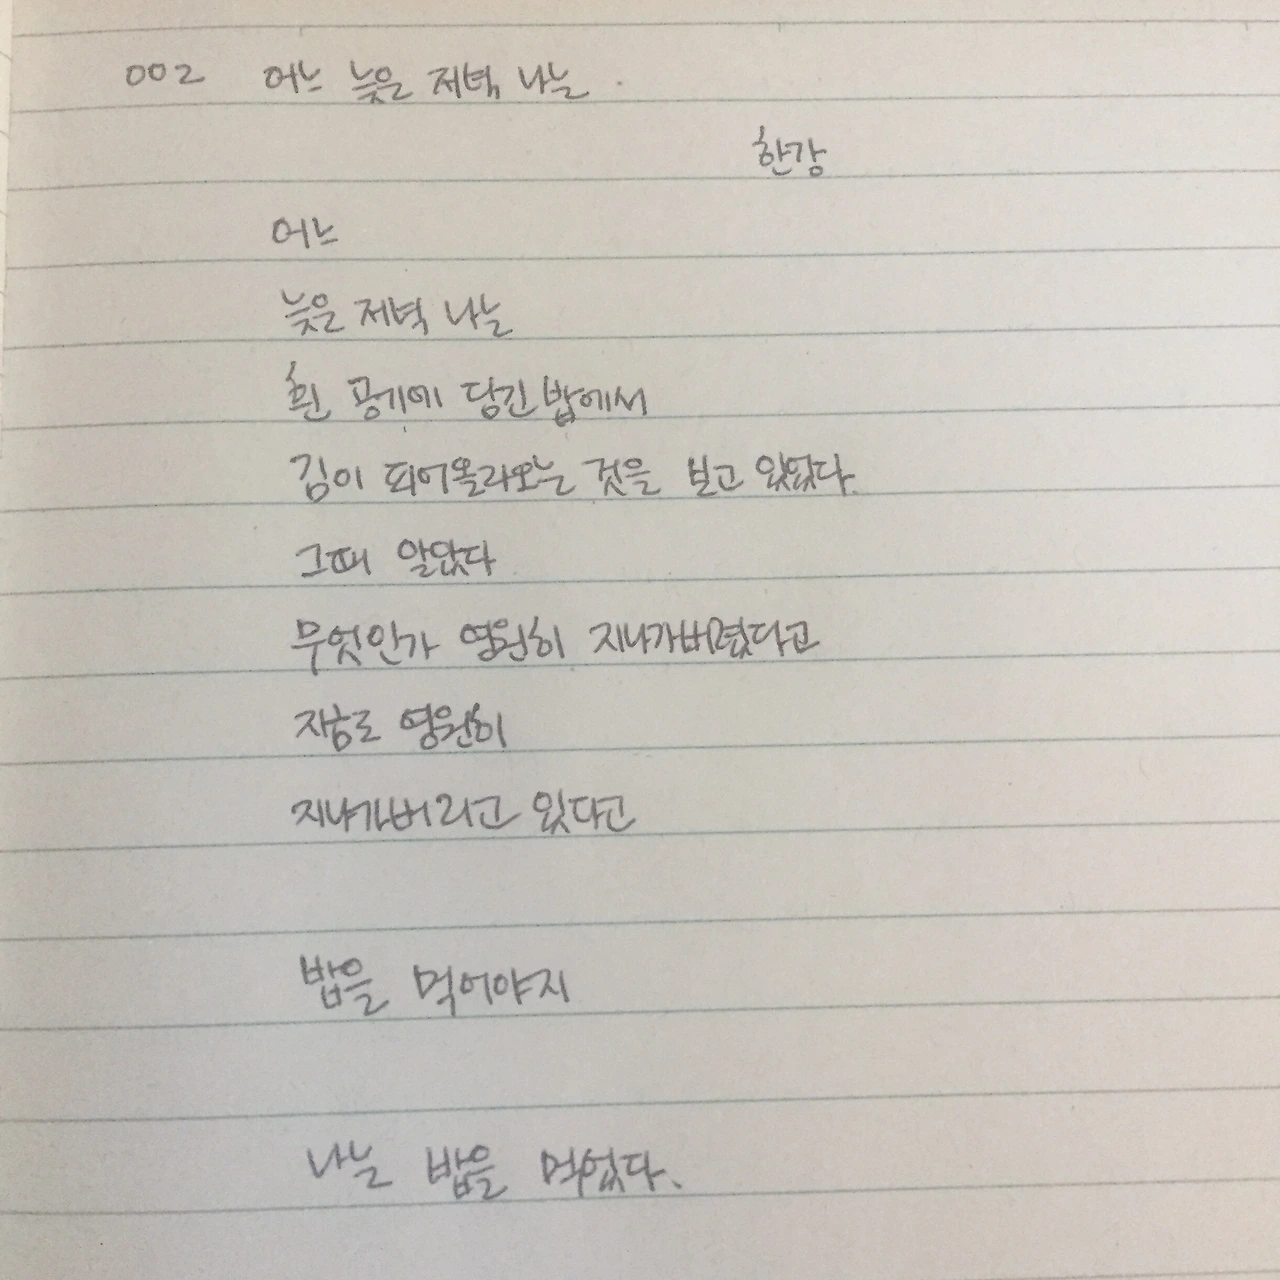 002 어느 늦은 저녁 나는.
한강
어느
늦은 저녁 나는
흰 공기에 담긴 밥에서
김이 피어올라오는 것을 보고 있었다.
그때 알았다
무엇인가 영원히 지나가버렸다고
지금도 영원히
지나가버리고 있다고
밥을 먹어야지
나는 밥을 먹었다.